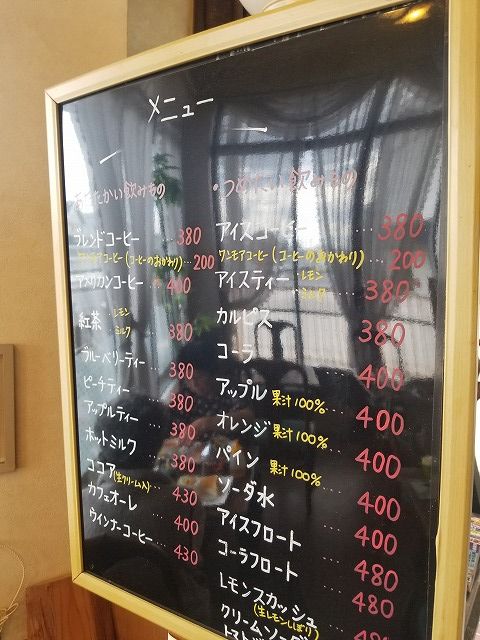 メニュー
あたたかい飲みもの
ブレンドコーヒー … 380
ワンモアコーヒー(コーヒーのおかわり) … 200
アメリカンコーヒー … 400
紅茶 ・レモン ・ミルク … 380
ブルーベリーティー … 380
ピーチティー … 380
アップルティー … 380
ホットミルク … 380
ココア(生クリーム入) … 430
カフェオーレ … 400
ウインナーコーヒー … 430
・つめたい飲みもの
アイスコーヒー … 380
ワンモアコーヒー(コーヒーのおかわり) … 200
アイスティー ・レモン ・ミルク … 380
カルピス … 380
コーラ … 400
アップル 果汁100% … 400
オレンジ 果汁100% … 400
パイン 果汁100% … 400
ソーダ水 … 400
アイスフロート … 480
コーラフロート … 480
レモンスカッシュ
(生レモンしぼり)
クリームソーダ